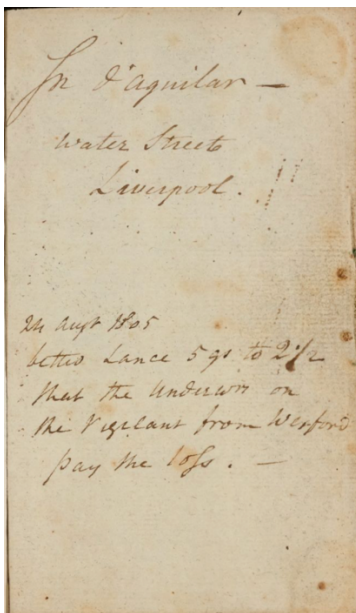 Jn d'aguilar —
Water Street
Liverpool.
24 augt 1805
betted Lance 5 gs to 2 1/2
that the Underwrs on
the Vigilant from Wexford
pay the loss. —